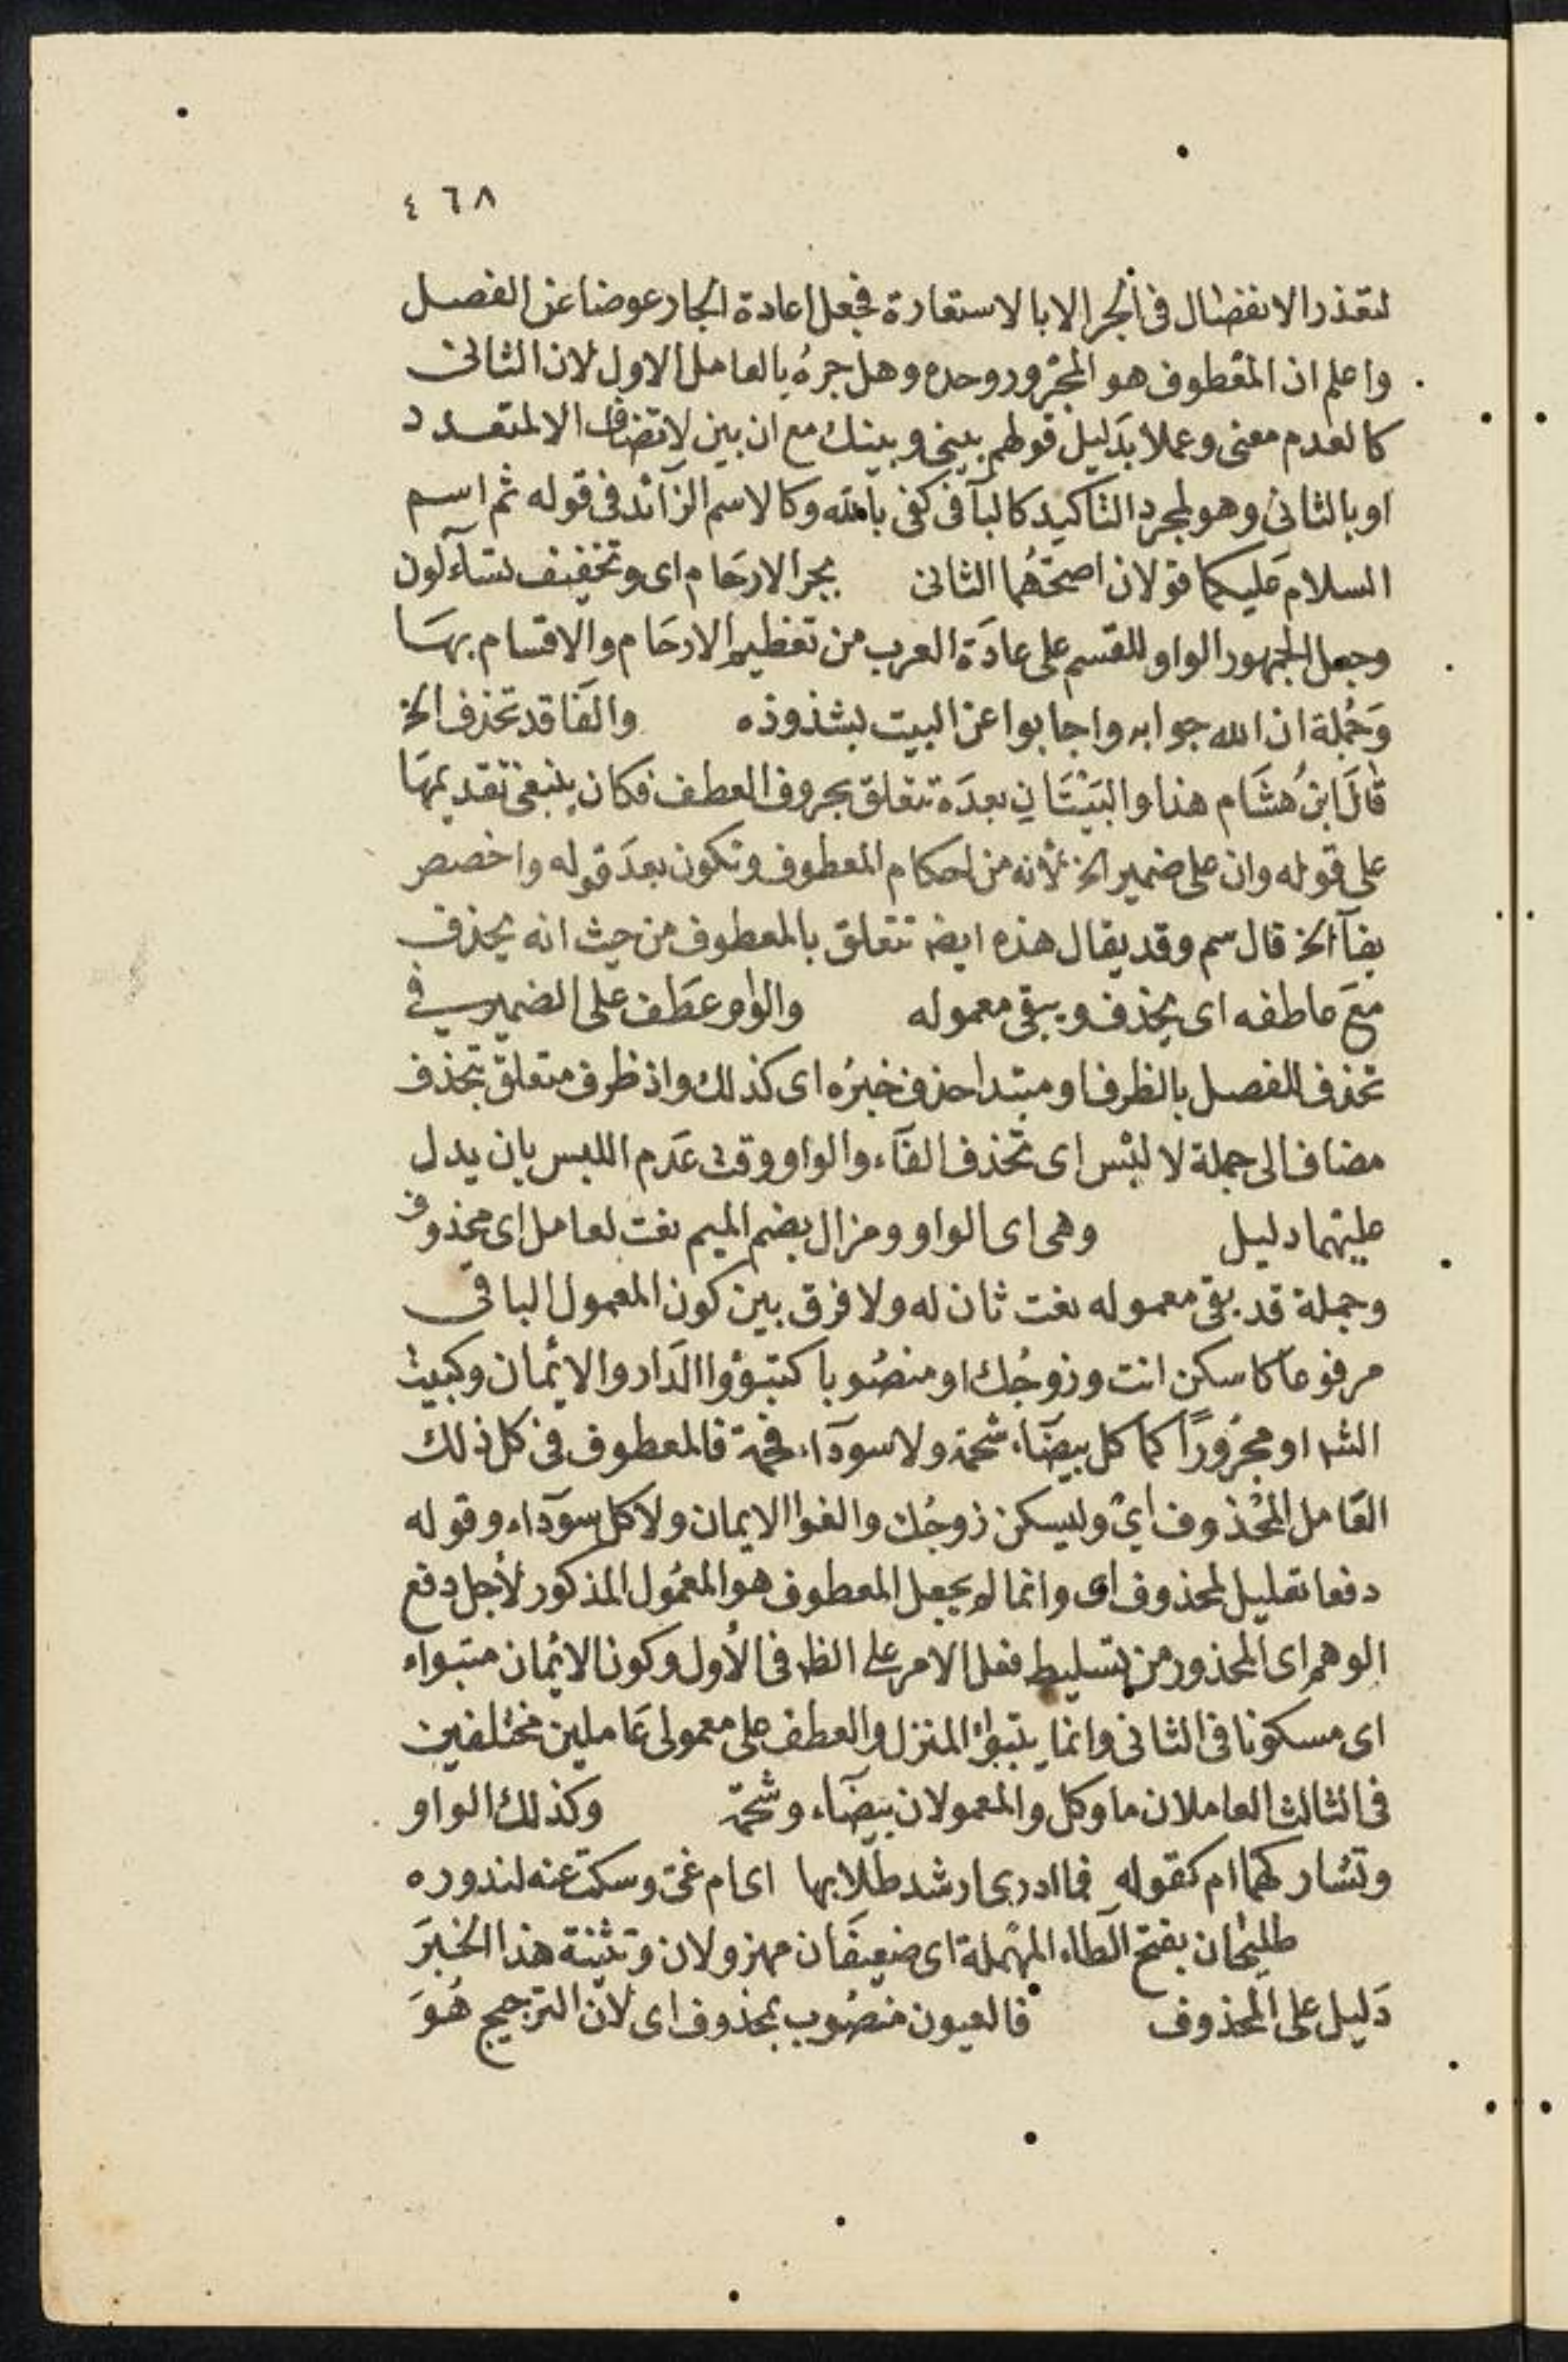 ٤٦٨
لتعذر الانفضال فى الجر الا بالاستعارة فجعل اعادة الجار عوضا عن الفصل
واعلم ان المعطوف هو المجرور وحده وهل جره بالعامل الاول لان الثانى
كالعدم معنى وعملا بدليل قولهم بينى وبينك مع ان بين لا تضاف الا لمتعدد
او بالثانى وهو لمجرد التاكيد كالبآ فى كفى بالله وكالاسم الزآئد فى قوله ثم اسم
السلام عليكما قولان اصحهُما الثانى بجر الارحام اى وتخفيف تسآءلون
وجعل الجمهور الواو للقسم على عادَة العرب من تعظيم الارحَام والاقسام بهَا
وَجُملة ان الله جوابه واجابوا عن البيت بشذوذه والفا قد تحذف الخ
قالَ ابنُ هشَام هذا والبَيْتَانِ بعدَه تتعلق بحروف العطف فكان ينبغى تقديمهَا
على قوله وان على ضمير الخ لأنه من احكام المعطوف وتكون بعدَ قوله واخصص
بفآ الخ قال سم وقد يقال هذه ايضه تتعلق بالمعطوف من حيث انه يحذف
مَعَ عاطفه اى يحذف ويبقى معموله والواو عطَف على الضمير فى
تحذف للفصل بالظرف او مبتدا حذف خبرُه اى كذلك واذ ظرف متعلق بتحذف
مضاف الى جملة لا لبْس اى تحذف الفآء والواو وقت عَدم اللبس بان يدل
عليهما دليل وهى اى الواو ومزال بضم الميم نعت لعامل اى محذوف
وجملة قد بقى معموله نعت ثان له ولا فرق بين كون المعمول الباقى
مرفوعا كاسكن انت وزوجُك او منصُوبا كتبوؤا الدَار والائمان وكبيت
الشه او مجرُورًا كما كل بيضَآء شحمة ولا سودآء فحمة فالمعطوف فى كل ذلك
العَامل المحُذوف اىْ وليسكن زوجُك والفوا الايمان ولا كل سودآء وقوله
دفعا تعليل لمحذوف اى وانما لم يجعل المعطوف هو المعمُول المذكور لأجل دفع
الوهم اى المحذور من تسليط فعل الامر على الظه فى الأول وكون الائمان متبواء
اى مسكونا فى الثانى وانما يتبوأ المنزل والعطف على معمولى عَاملين مختلفين
فى الثالث العاملان ما وكل والمعمولان بيضَآء وشحمة وكذلك الواو
وتشاركهمَا ام كقوله فما ادرى ارشد طلابها اى ام غىّ وسكت عنه لندوره
طليحَان بفتح الطاء المهمَلة اى ضعيفَان مهزولان وتثنية هذا الخبَرَ
دَليل على المحذوف فالعيون منصُوب بمحذوف اى لأن الترجيج هُوَ